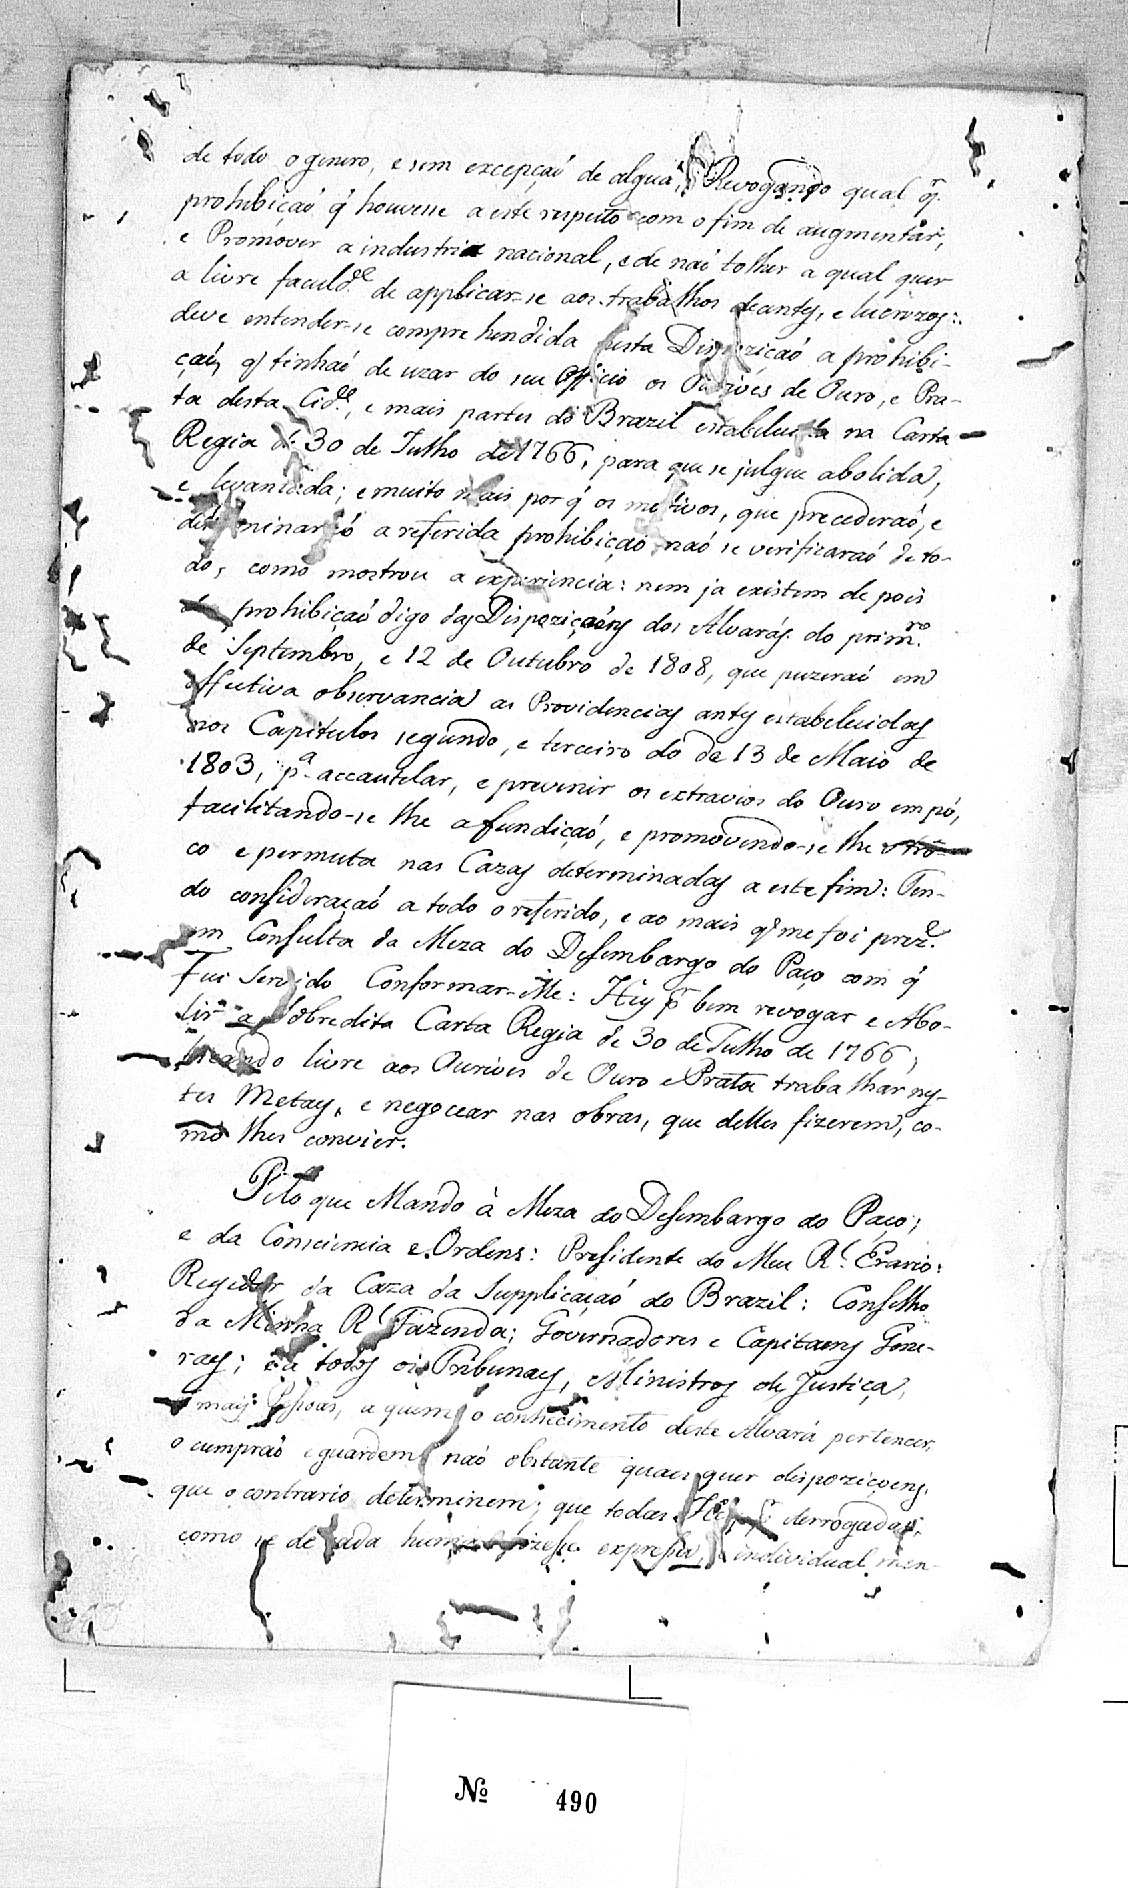 de todo o genero, e sem excepçaõ de algũa; Revogando qual q.^r
prohibiçaõ q̃ houvesse a este respeito com o fim de augmentar,
e Promover a industria nacional, e de naõ tolher a qual quer
a livre faculd.^de de applicar-se aos trabalhos deantes, e lucrozos:
deve entender-se comprehendida nesta Dispoziçaõ a prohibi-
çaõ, q̃ tinhaõ de uzar do seu Officio os Ourives de Ouro, e Pra-
ta desta Cid.^de, e mais partes do Brazil estabelecida na Carta
Regia de 30 de Julho de 1766, para que se julgue abolida,
e levantada; e muito mais por q̃ os motivos, que precederaõ, e
determinaraõ a referida prohibiçaõ naõ se verificaraõ de to-
do, como mostrou a experiencia: nem ja existem depois
da prohibiçaõ digo das Dispoziçoens dos Alvarás do prim.^ro
de Septembro, e 12 de Outubro de 1808, que puzeraõ em
effectiva observancia as Providencias antes estabelecidas
nos Capitulos segundo, e terceiro do de 13 de Maio de
1803, p.^a accautelar, e prevenir os extravios do Ouro em pó,
facilitando-se lhe a fundiçaõ, e promovendo-se lhe o tro-
co e permuta nas Cazas determinadas a este fim: Ten-
do consideraçaõ a todo o referido, e ao mais q̃ me foi prez.^e
em Consulta da Meza do Desembargo do Paço com q̃
Fui Servido Conformar-Me: Hey p.^r bem revogar e Abo-
lir a sobredita Carta Regia de 30 de Julho de 1766,
ficando livre aos Ourives de Ouro e Prata trabalhar nes-
tes Metaes, e negocear nas obras, que delles fizerem, co-
mo lhes convier.
Pelo que Mando à Meza do Desembargo do Paço;
e da Consciencia e Ordens: Presidente do Meu R.^l Erario:
Regedor da Caza da Supplicaçaõ do Brazil: Conselho
da Minha R.^l Fazenda; Governadores e Capitaens Gene-
raes; e a todos os Tribunaes, Ministros de Justiça,
e mais Pessoas, a quem o conhecimento deste Alvará pertencer,
o cumpraõ e guardem naõ obstante quaes quer dispoziçoens,
que o contrario determinem; que todas Hei p.^r derrogadas,
como se de cada huma fizesse expressa, individual men-
Nº 490